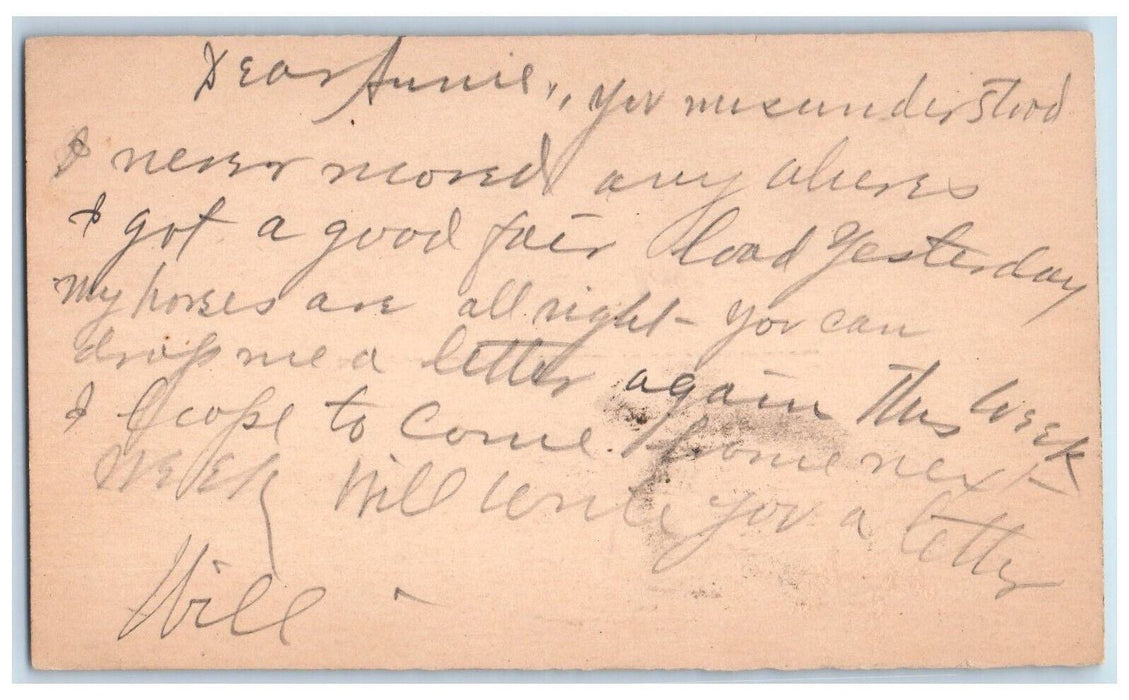 Dear Annie., you misunderstood
I never moved any wheres
I got a good fair load Yesterday
My horses are all right - you can
drop me a letter again this week
I hope to come home next
week Will write you a letter
Will -